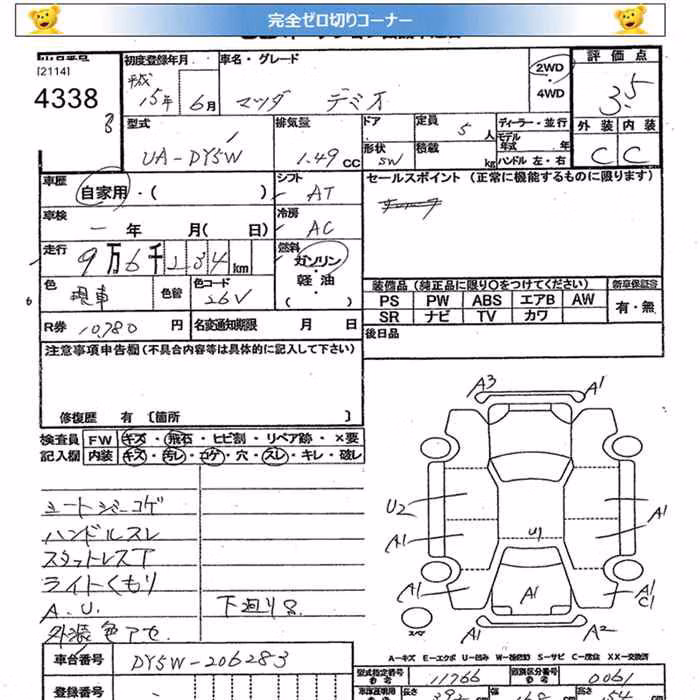 完全ゼロ切りコーナー
[2114]
4338
初度登録年月
平成
15年 6月
車名・グレード
マツダ デミオ
2WD
・
4WD
評価点
3.5
外装 内装
C C
型式
UA-DY5W
排気量
1.49 CC
ドア
形状
5W
定員
5 人
積載
kg
ディーラー・並行
モデル年式 年
ハンドル 左・右
車歴
自家用・( )
シフト
AT
車検
一 年 月( 日)
冷房
AC
走行
9万6千234 km
燃料
ガソリン
・
軽油
( )
色
現車
色替
色コード
26V
R券 10,780 円
名変通知期限 月 日
セールスポイント (正常に機能するものに限ります)
装備品 (純正品に限り○をつけてください) 新車保証書
PS PW ABS エアB AW
有・無
SR ナビ TV カワ
後日品
注意事項申告欄 (不具合内容等は具体的に記入して下さい)
修復歴 有 〔箇所 〕
検査員 FW キズ・飛石・ヒビ割・リペア跡・×要
記入欄 内装 キズ・汚レ・コゲ・穴・スレ・キレ・破レ
ハンドルスレ
スタットレスT
ライトくもり
A.U.
下廻りS
外装色アセ
A3 A1
U2 A1
A1 U1 A1
A1 A1 A1
C1
A2
A-キズ E-エクボ U-凹み W-補修跡 S-サビ C-腐食 XX-交換済
車台番号 DY5W-206283
型式指定番号 11766
類別区分番号 0061
参考
登録番号
長さ 392 幅 168 高さ